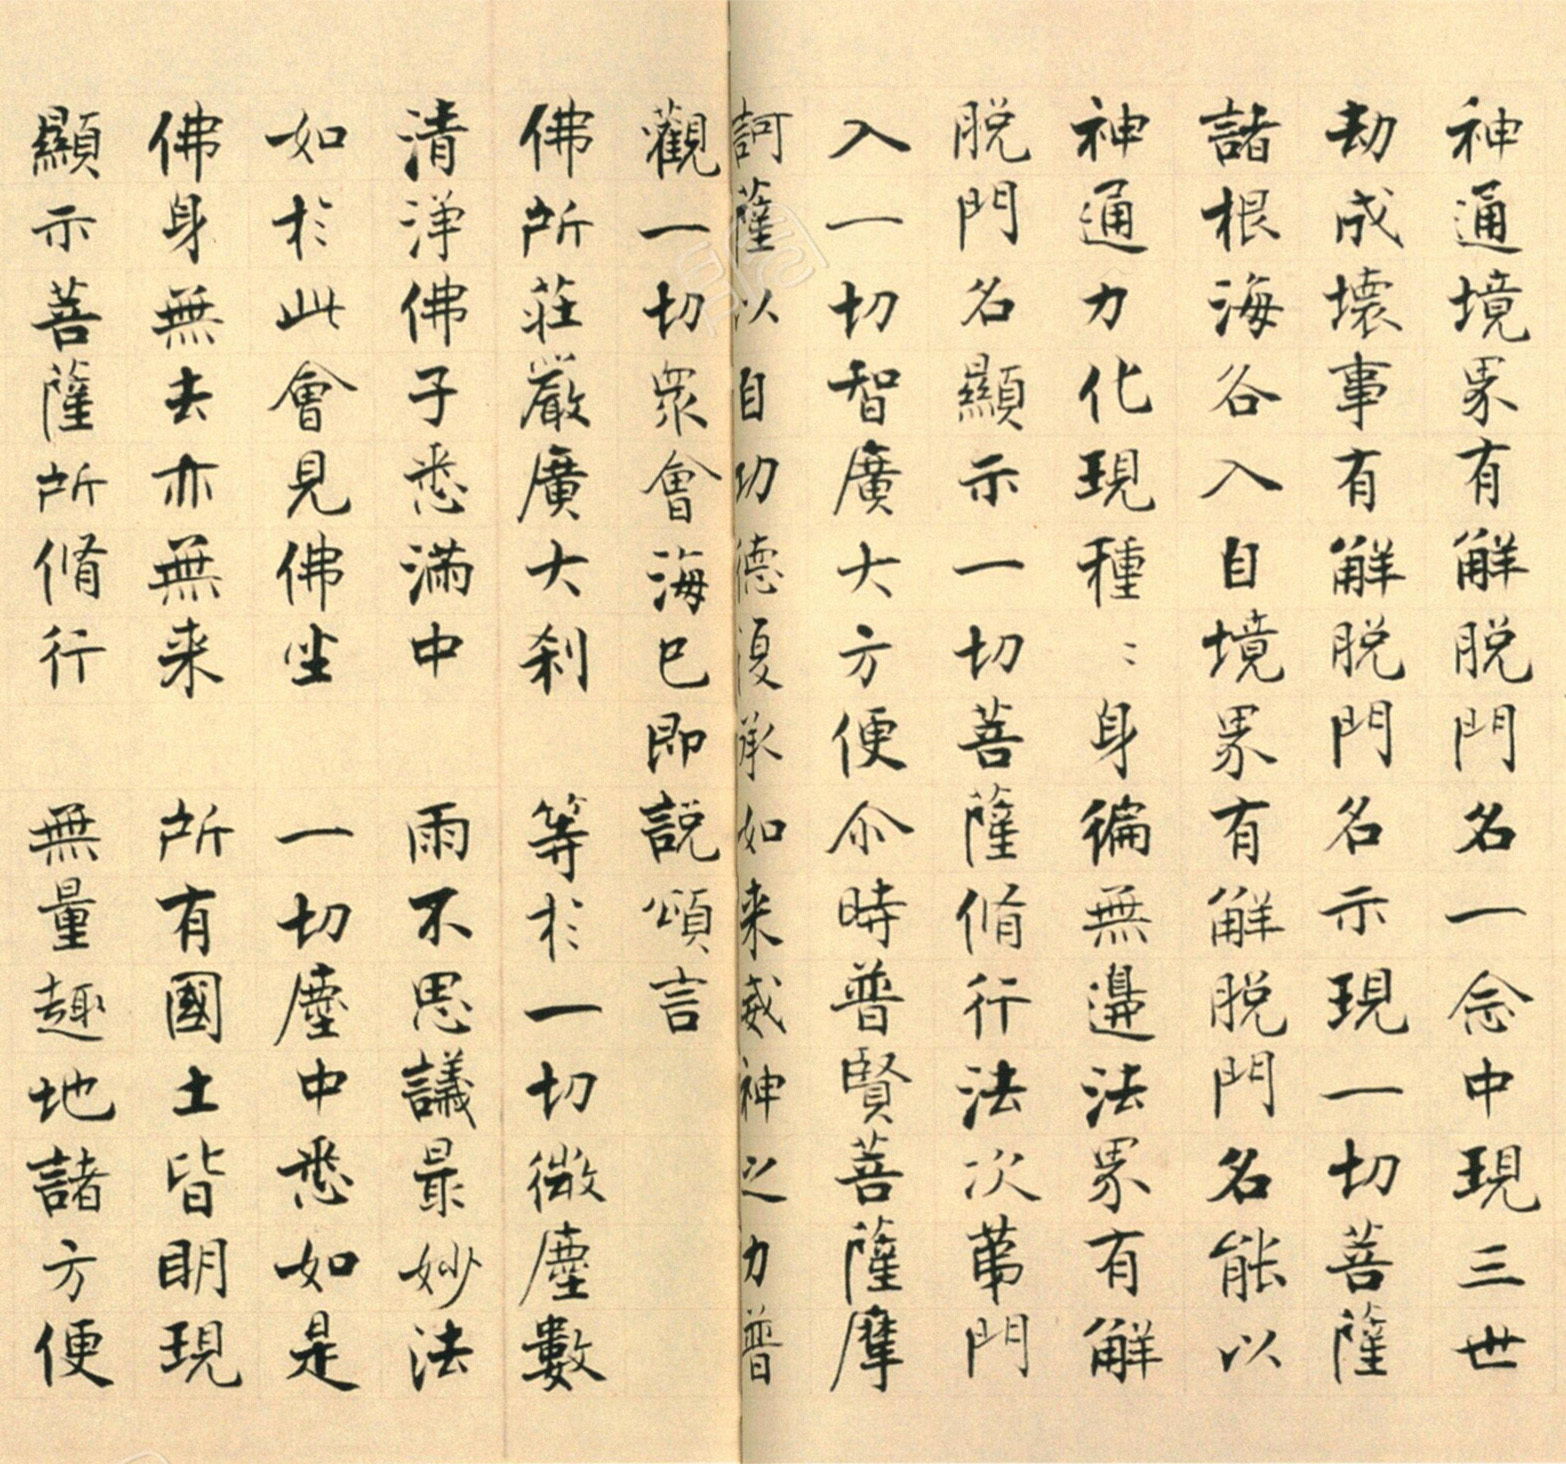 神通境界有解脱門名一念中現三世
劫成壞事有解脱門名示現一切菩薩
諸根海各入自境界有解脱門名能以
神通力化現種〻身徧無邊法界有解
脱門名顯示一切菩薩脩行法次第門
入一切智廣大方便尒時普賢菩薩摩
訶薩以自功德復承如来威神之力普
觀一切衆會海已即説頌言
佛所莊嚴廣大刹　等於一切微塵數
清淨佛子悉滿中　雨不思議最妙法
如於此會見佛坐　一切塵中悉如是
佛身無去亦無来　所有國土皆明現
顯示菩薩所脩行　無量趣地諸方便